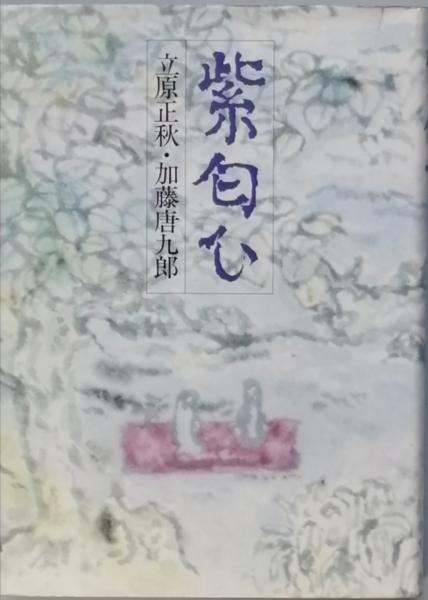 紫匂ひ
立原正秋・加藤唐九郎